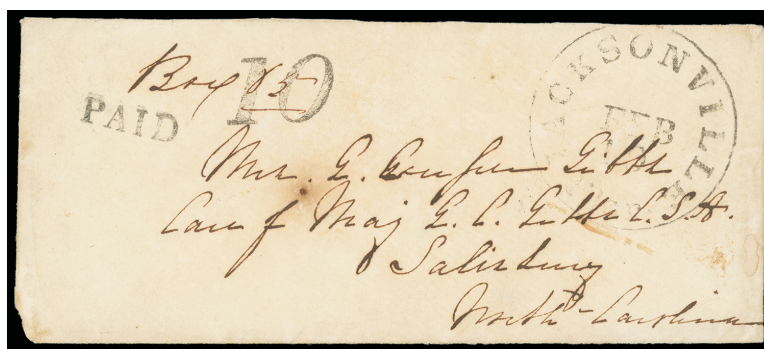 Box 85
PAID 10
JACKSONVILLE
FEB
Mrs. G. Couper Gibbs
Care of Maj G. C. Gibbs C.S.A.
Salisbury
North Carolina